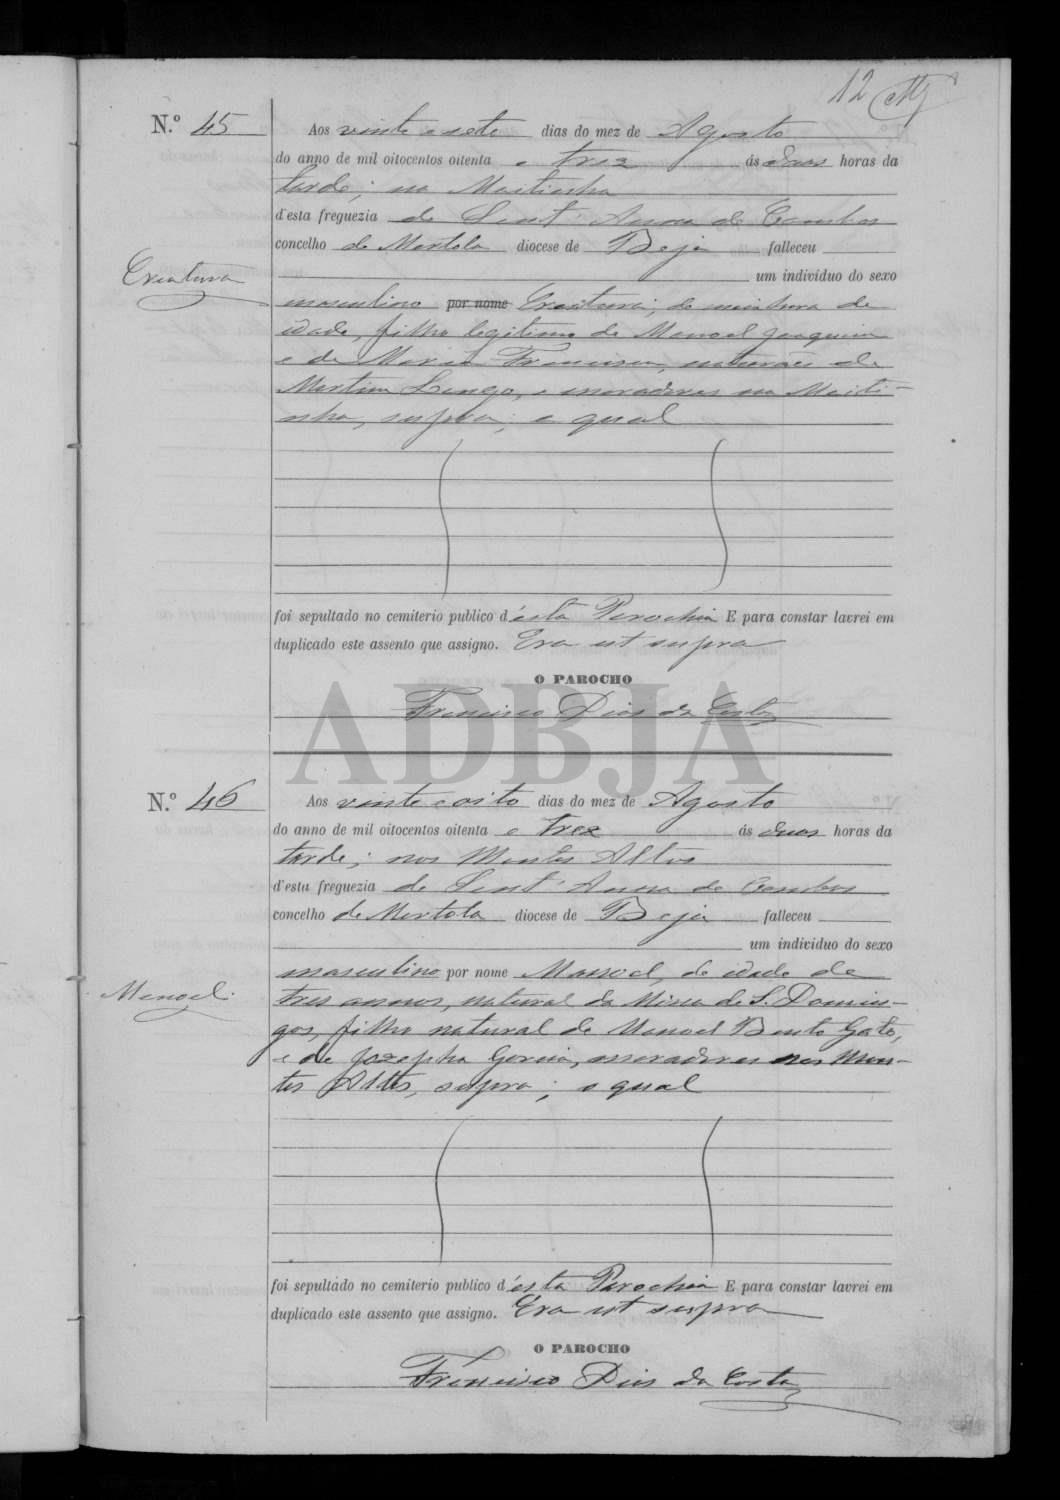 12
N.º 45
Aos vinte e sete dias do mez de Agosto
do anno de mil oitocentos oitenta e trez ás duas horas da
tarde; na
d'esta freguezia de Sant'Anna de Cambas
concelho de Mertola diocese de Beja falleceu
Creatura
um individuo do sexo
masculino por nome Creatura; de de
idade, filho legitimo de Manoel Joaquim
e de Maria Francisca, naturaes de
Martim Longo, e moradores na
supra; o qual
foi sepultado no cemiterio publico d'ésta Parochia E para constar lavrei em
duplicado este assento que assigno. Era ut supra
O PAROCHO
Francisco Dias da Costa
ADBJA
N.º 46
Aos vinte e oito dias do mez de Agosto
do anno de mil oitocentos oitenta e trez ás duas horas da
tarde; nos Montes Altos
d'esta freguezia de Sant'Anna de Cambas
concelho de Mertola diocese de Beja falleceu
um individuo do sexo
Manoel
masculino por nome Manoel, de idade de
tres annos, natural da Mina de S. Domin-
gos, filho natural de Manoel Bento Gato,
e de Jozepha Garcia, moradores nos Mon-
tes Altos, supra; o qual
foi sepultado no cemiterio publico d'ésta Parochia E para constar lavrei em
duplicado este assento que assigno. Era ut supra
O PAROCHO
Francisco Dias da Costa